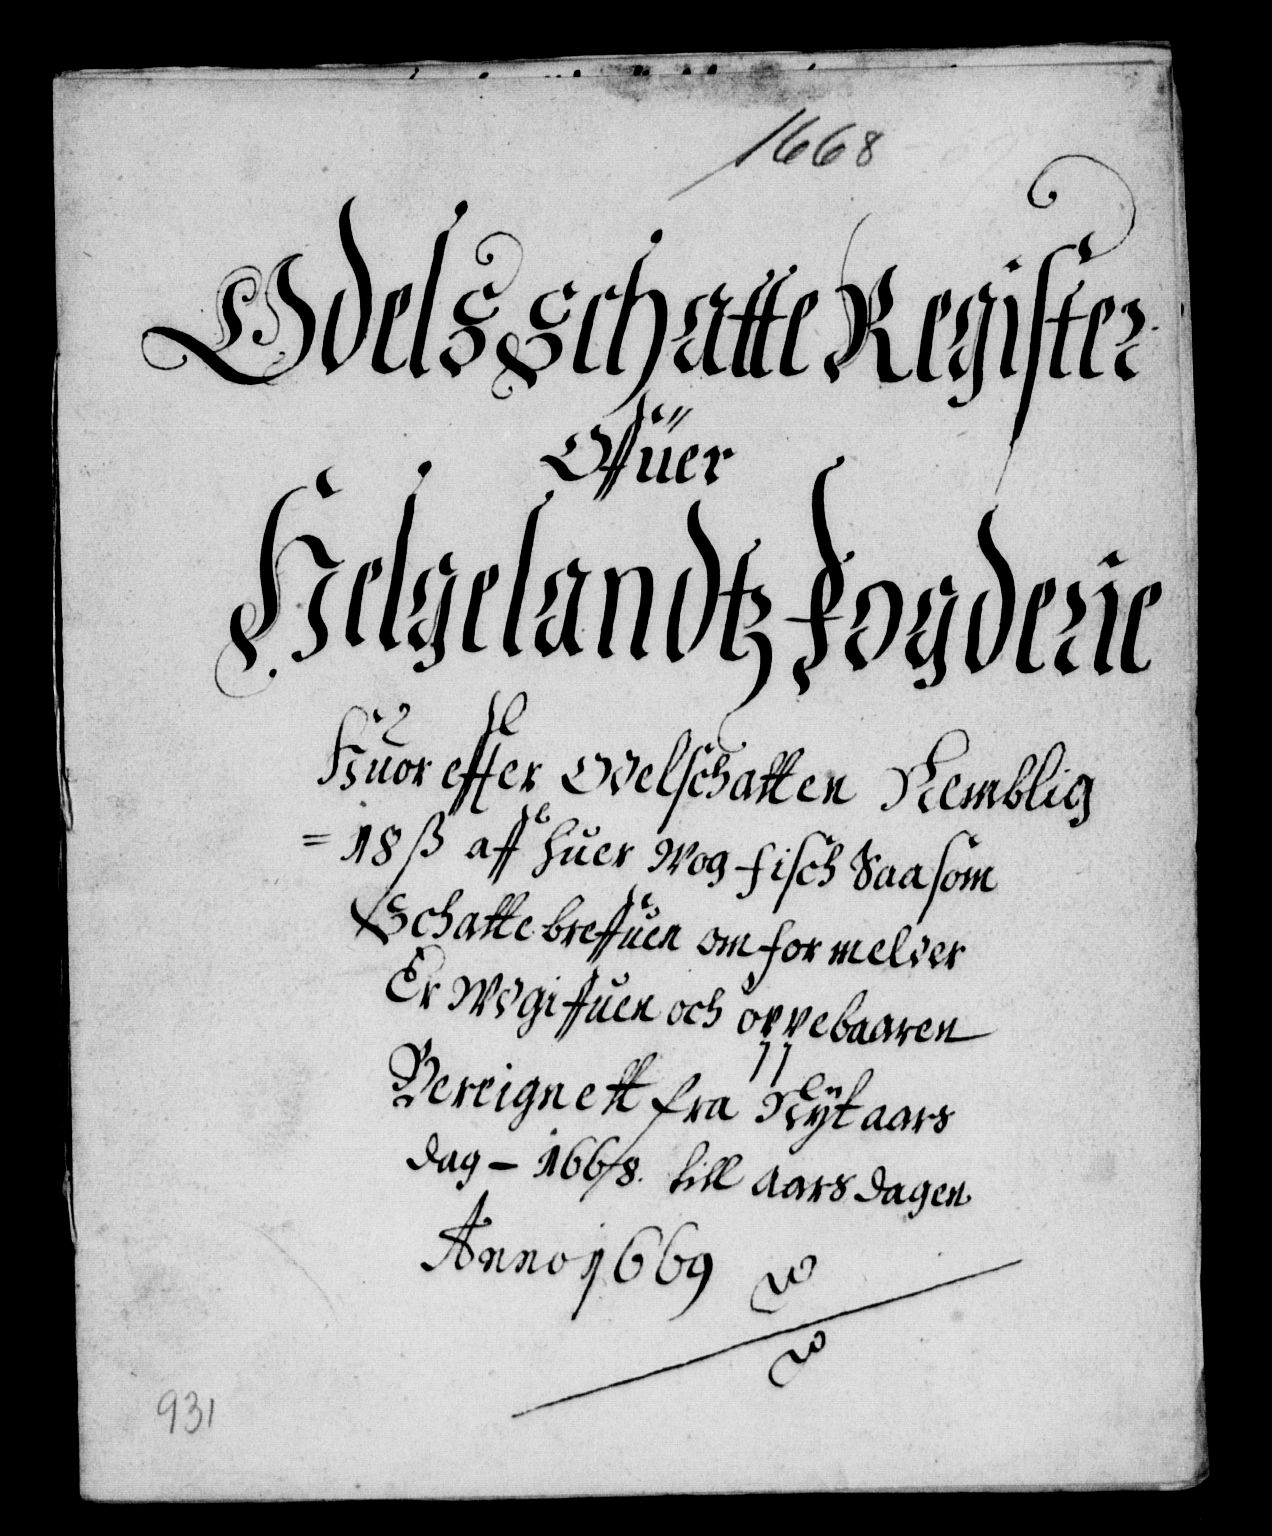 1668 - 69
Odels Schatte Register
Offuer
Helgelandtz Fogderie
Huor effter Odelschatten Nemblig
= 18 ß aff huer Wog fisch Saa som
Schattebreffuen omformelder
Er Wdgiffuen och oppebaaren
Bereignett fra Nÿt aars
dag - 1668. till Aars dagen
Anno 1669
931